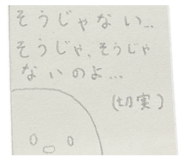 そうじゃない…
そうじゃ、そうじゃ
ないのよ…
(切実)